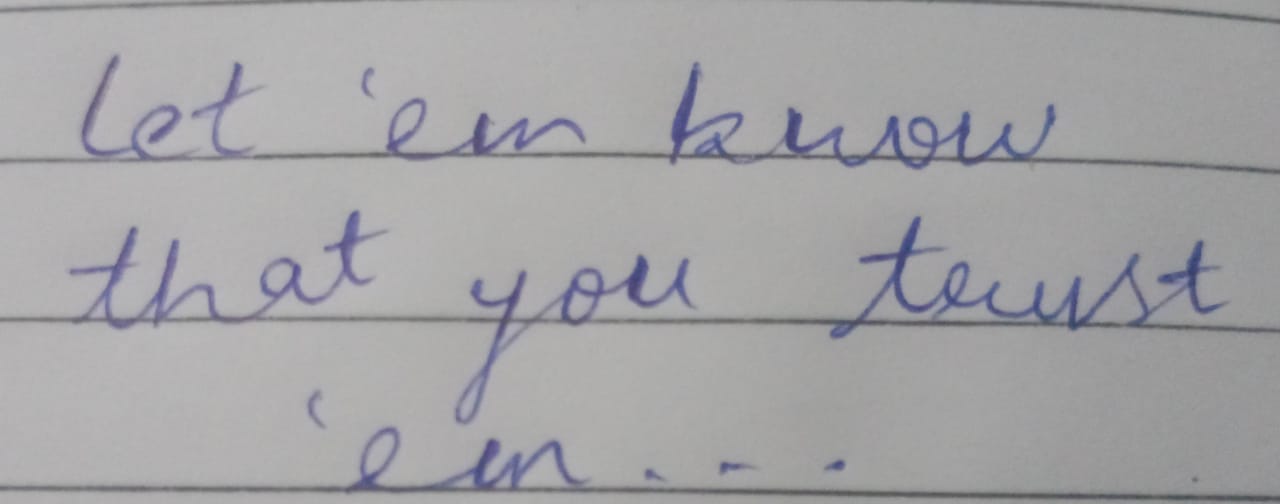 Let 'em know
that you trust
'em...